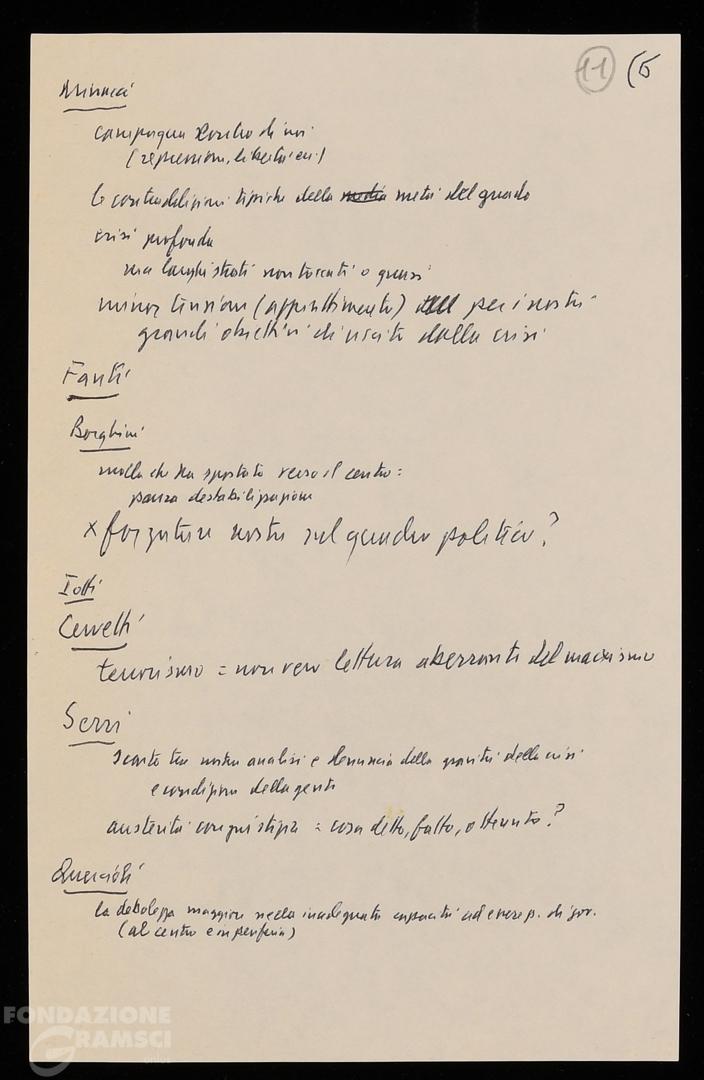 11 (5
Minucci
campagna contro di noi
(repressioni, libertà ecc.)
le contraddizioni tipiche della metà del guado
crisi profonda
ma larghi strati non toccati o quasi
minor tensione (appiattimento) per i nostri
grandi obiettivi di uscita dalla crisi
Fanti
Borghini
molla che ha spostato verso il centro:
paura destabilizzazione
x forzature nostre sul quadro politico?
Iotti
Cervetti
terrorismo = non vera lettura aberrante del marxismo
Serri
scarto tra nostra analisi e denuncia della gravità della crisi
e condizioni della gente
austerità congiustizia = cosa detto, fatto, ottenuto?
Quercioli
la debolezza maggiore nella inadeguata capacità ad essere p. di gov.
(al centro e in periferia)
FONDAZIONE
GRAMSCI
onlus